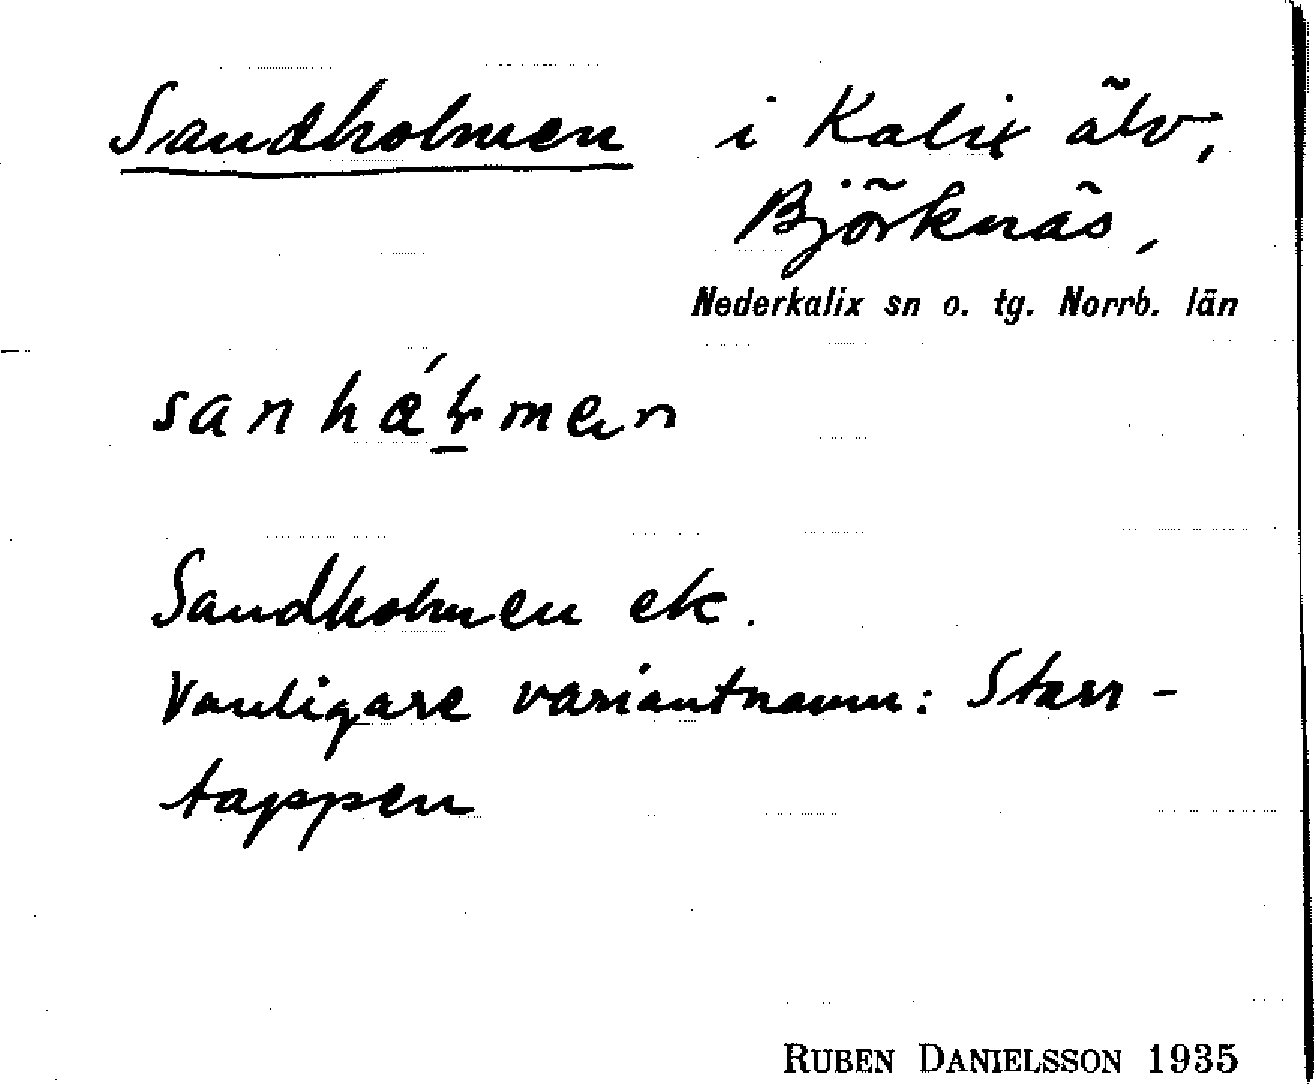 Sandholmen i Kalix älv,
Björknäs,
Nederkalix sn o. tg. Norrb. län
Sandholmen ek.
Vanligare variantnamn: Starr-
tappen
RUBEN DANIELSSON 1935